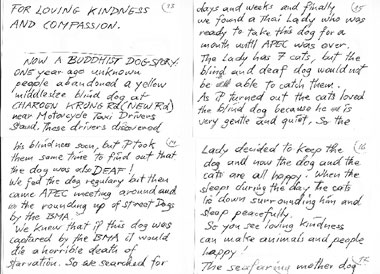 FOR LOVING KINDNESS (13
AND COMPASSION.
NOW A BUDDHIST DOG STORY:
ONE year ago unknown
people abandoned a yellow
middlesize blind dog at
CHAROEN KRUNG Rd (NEW Rd)
near Motorcycle Taxi Drivers
Stand. These drivers discovered
his blindness soon, but it took (14
them some time to find out that
the dog was also DEAF!
We fed the dog regulary but then
came APEC meeting around and
so the rounding up of street Dogs
by the BMA.
We knew that if this dog was
captured by the BMA it would
die a horrible death of
starvation. So we searched for
days and weeks and finally (15
we found a Thai Lady who was
ready to take this dog for a
month until APEC was over.
The Lady has 7 cats, but the
blind and deaf dog would not
be able to catch them.
As it turned out the cats loved
the blind dog because he is
very gentle and quiet. So the
Lady decided to keep the (16
dog and now the dog and the
cats are all happy! When the
sleeps during the day the cats
lie down surrounding him and
sleep peacefully.
So you see loving kindness
can make animals and people
happy!
The seafaring mother dog (17